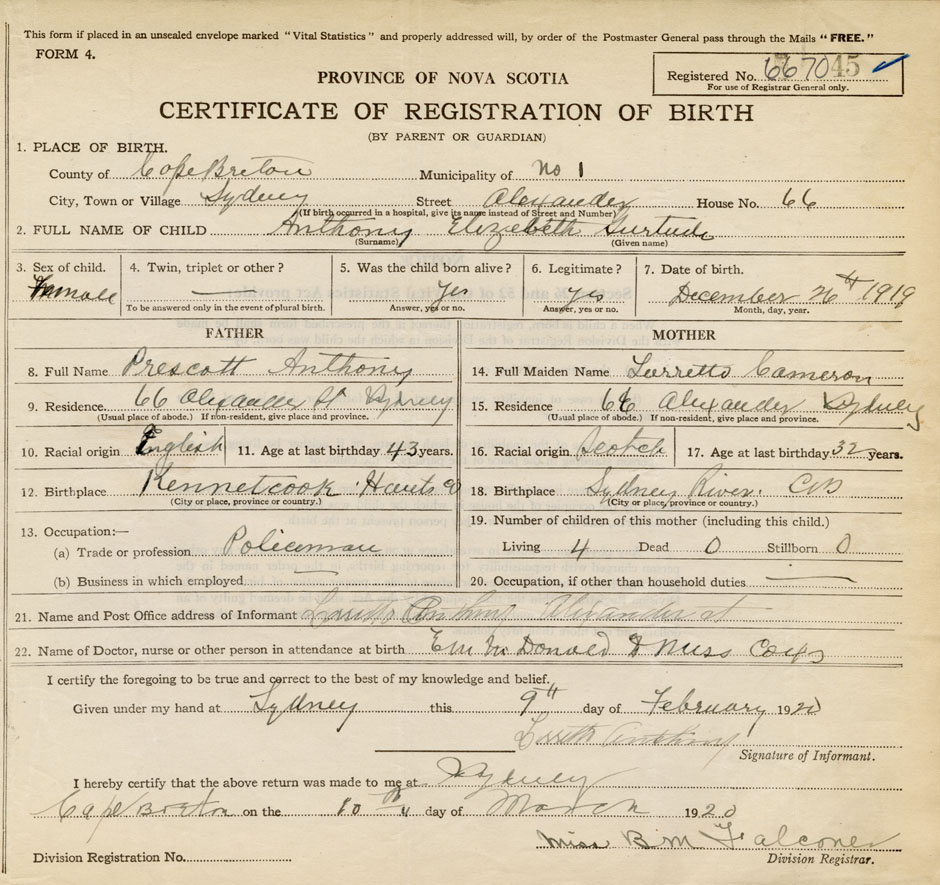 This form if placed in an unsealed envelope marked "Vital Statistics" and properly addressed will, by order of the Postmaster General pass through the Mails "FREE."
FORM 4.
PROVINCE OF NOVA SCOTIA
Registered No. 667045
For use of Registrar General only.
CERTIFICATE OF REGISTRATION OF BIRTH
(BY PARENT OR GUARDIAN)
1. PLACE OF BIRTH.
County of Cape Breton Municipality of No 1
City, Town or Village Sydney Street Alexander House No. 66
(If birth occurred in a hospital, give its name instead of Street and Number)
2. FULL NAME OF CHILD Anthony Elizebeth Gurtude
(Surname) (Given name)
3. Sex of child. 4. Twin, triplet or other? 5. Was the child born alive? 6. Legitimate? 7. Date of birth.
Female — Yes Yes December 26th 1919
To be answered only in the event of plural birth. Answer, yes or no. Answer, yes or no. Month, day, year.
FATHER
8. Full Name Prescott Anthony
9. Residence. 66 Alexander St Sydney
(Usual place of abode.) If non-resident, give place and province.
10. Racial origin English 11. Age at last birthday 43 years.
12. Birthplace Kennetcook Hants Co
(City or place, province or country.)
13. Occupation:—
(a) Trade or profession Policeman
(b) Business in which employed —
MOTHER
14. Full Maiden Name Lurretto Cameron
15. Residence 66 Alexander Sydney
(Usual place of abode.) If non-resident, give place and province.
16. Racial origin Scotch 17. Age at last birthday 32 years.
18. Birthplace Sydney River. CB
(City or place, province or country.)
19. Number of children of this mother (including this child.)
Living 4 Dead 0 Stillborn 0
20. Occupation, if other than household duties —
21. Name and Post Office address of Informant Anthony Alexander st
22. Name of Doctor, nurse or other person in attendance at birth McDonald & Miss
I certify the foregoing to be true and correct to the best of my knowledge and belief.
Given under my hand at Sydney this 9th day of February 1920
Anthony
Signature of Informant.
I hereby certify that the above return was made to me at Sydney
Cape Breton on the 10th day of March 1920
Miss B. M Falconer
Division Registration No. Division Registrar.